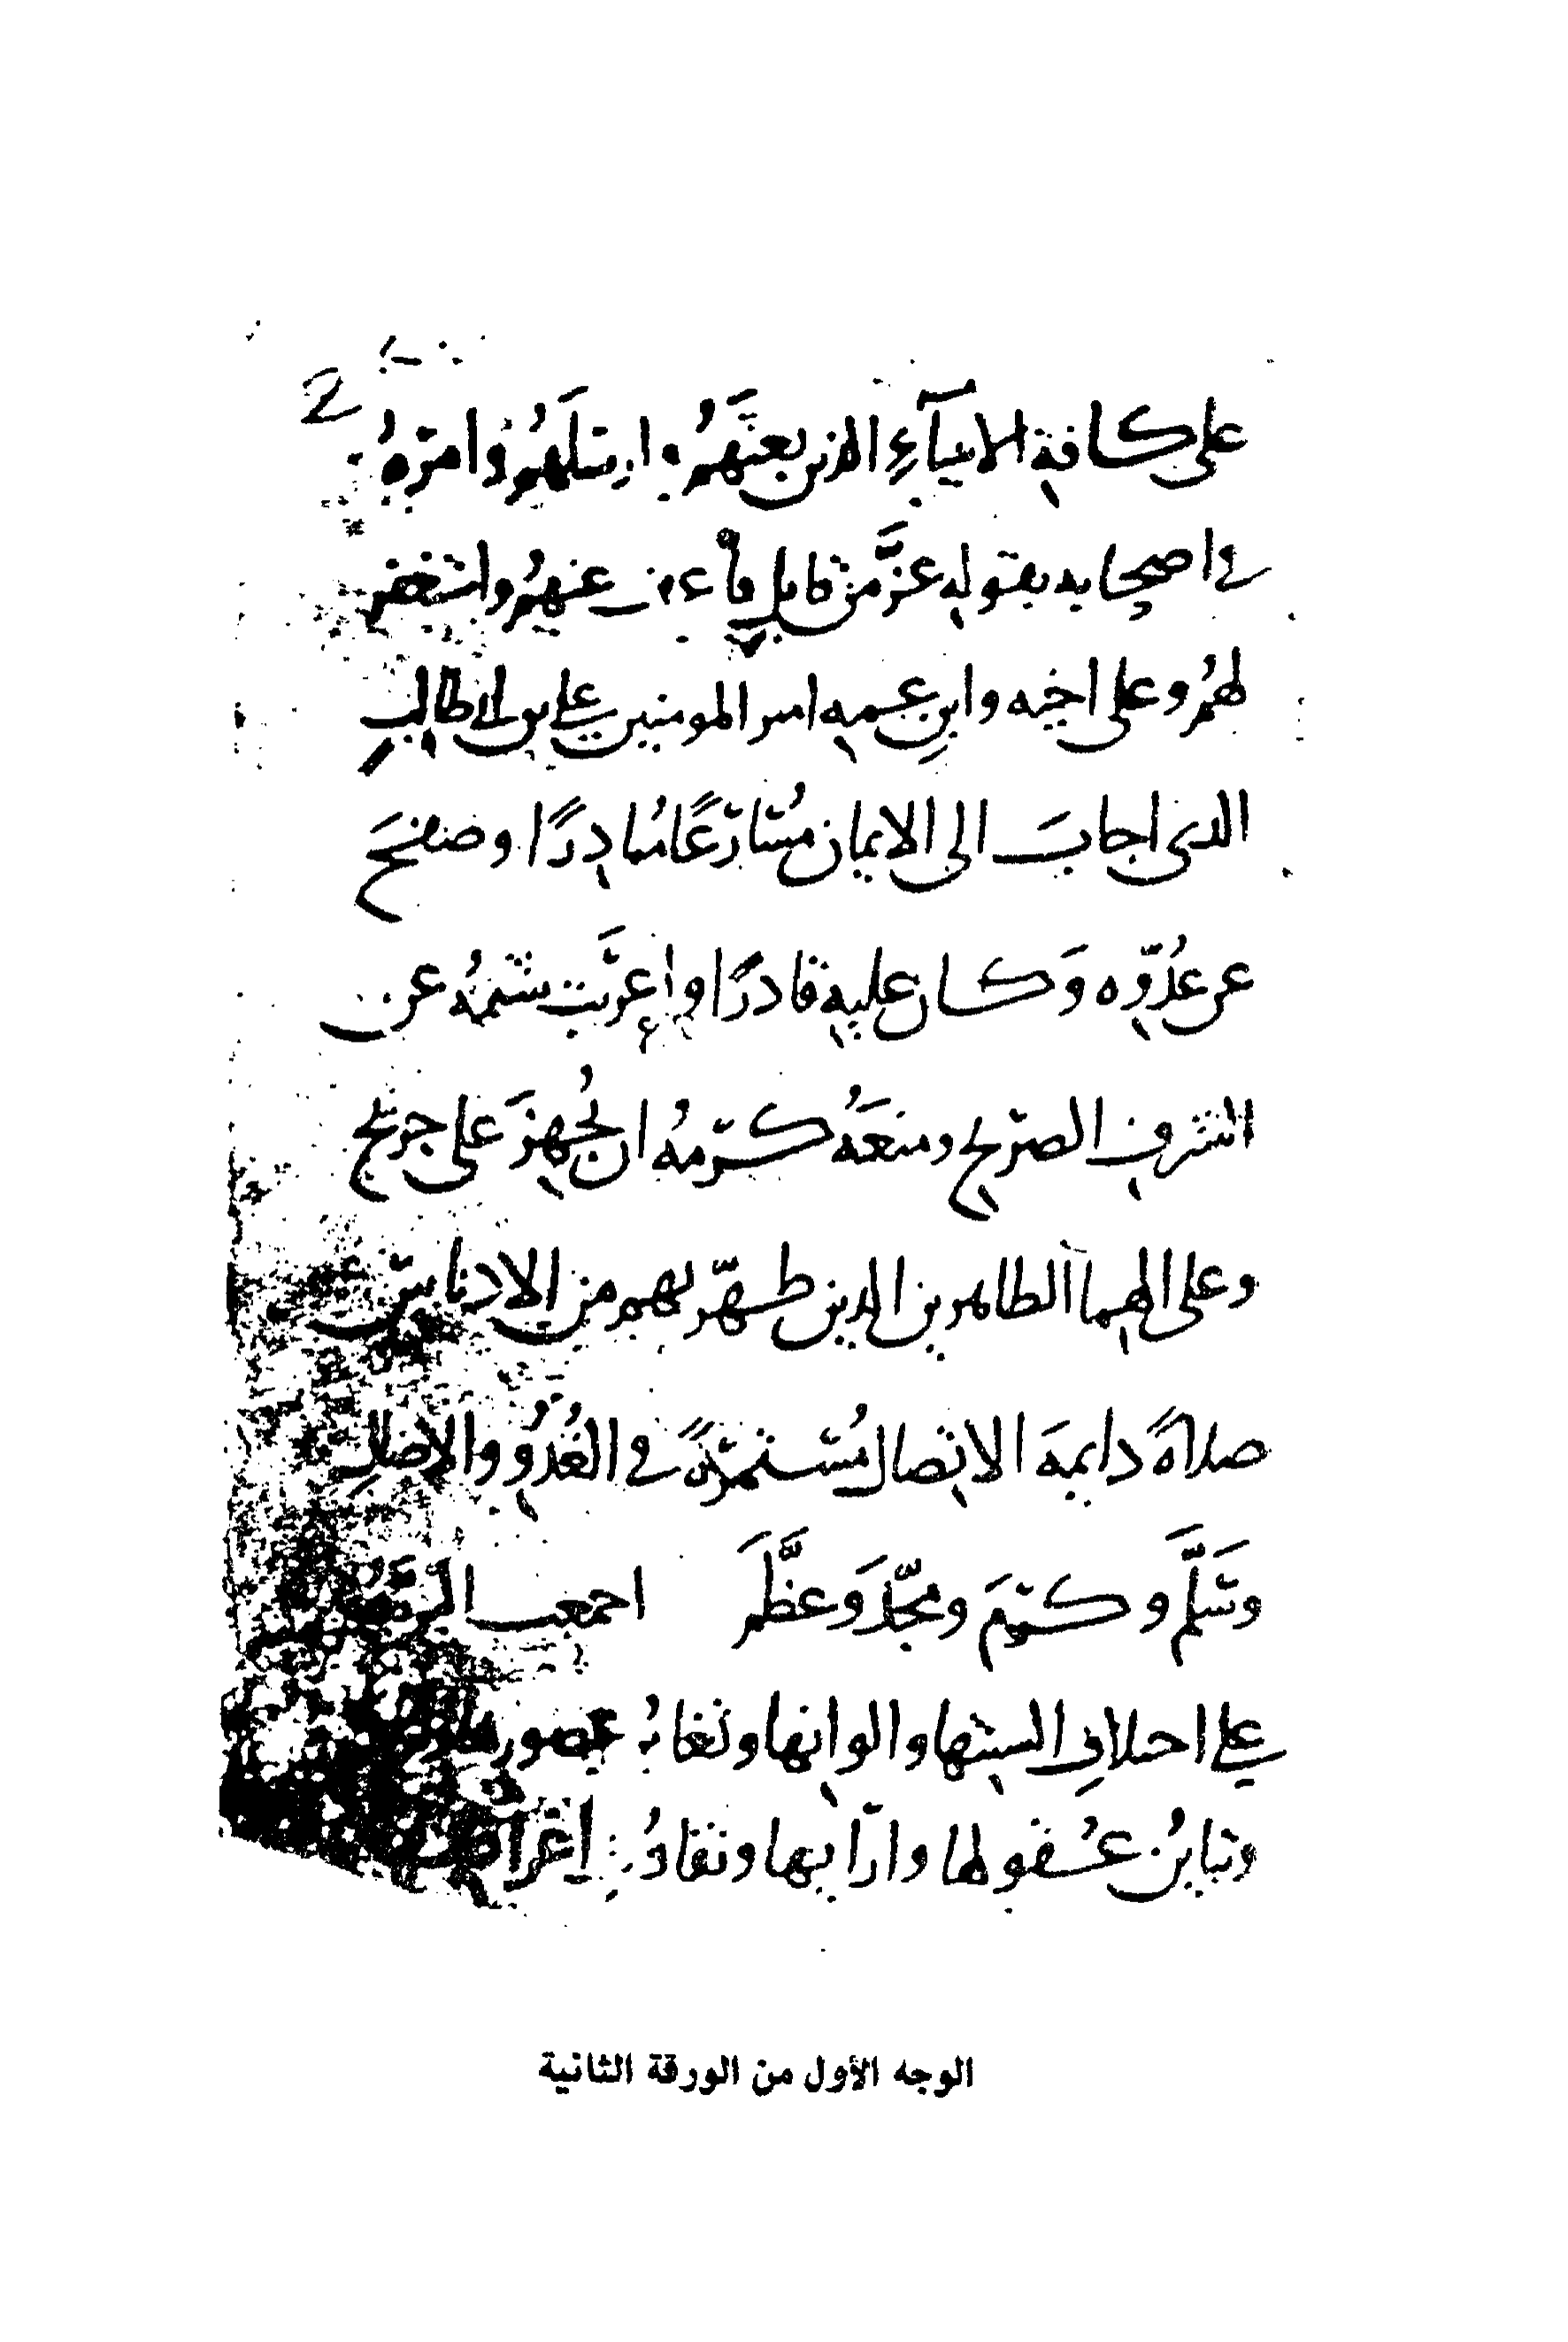 2
على كافة الانبيآءِ الذين بعثَهمُ وارسَلَهُم وامرَهُ
في اصحابه بقوله عزَّ من قايلٍ فاْعف عنهمُ واستغفر
لهمُ وعلى اخيه وابنِ عمه امير المومنين علي بن ابي طالبٍ
الذي اجابَ الى الايمان مُسَارعًا مُبادِرًا وصفحَ
عن عدُوّه وَكان عليه قادرًا واعربَت شيمُه عن
الشرف الصريح ومنعَهُ كرمهُ ان يُجهزَ على جريح
وعلى الهما الطاهرين الذين طهّرهم من الادناس
صلاةً دايمةَ الاتصال مُستمرّةً في الغُدُوِّ والاصالِ
وسَلَّم وكرَمَ ومجّدَ وَعظَّمَ اجمعت
على اختلافِ السنتها والوانها وتغايُر عصورها
وتبايُن عُقولها وارآيها وتفاوُت اغراض
الوجه الأول من الورقة الثانية